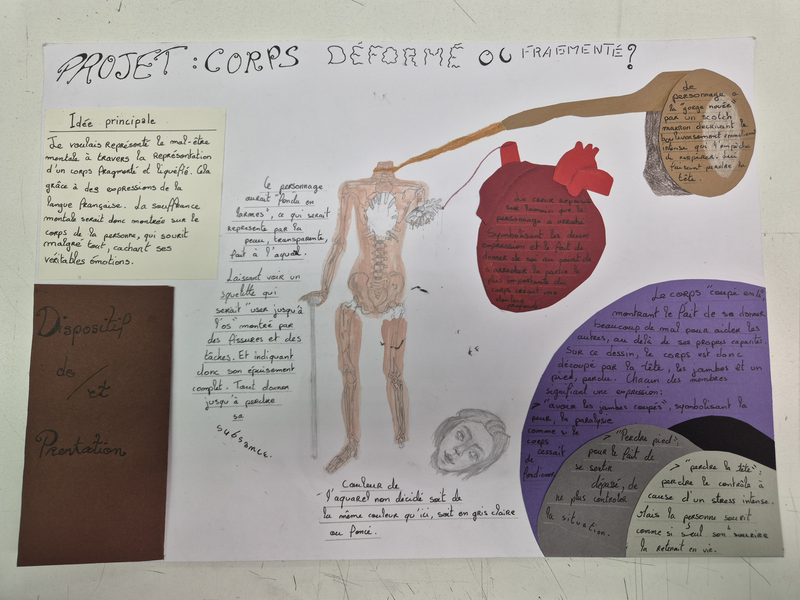 PROJET : CORPS DÉFORMÉ OU FRAGMENTÉ ?
Idée principale
Je voulais représenté le mal-être
mentale à travers la représentation
d'un corps fragmenté et liquéfié. Cela
grâce à des expressions de la
langue française. La souffrance
mentale serait donc montrée sur le
corps de la personne, qui sourit
malgré tout, cachant ses
véritables émotions.
Dispositif
de / et
Prentation
Le personnage
aurait "fondu en
larmes", ce qui serait
représenté par la
peau, transparente,
fait à l'aquarel.
Laissant voir un
squelette qui
serait "user jusqu'à
l'os" montré par
des fissures et des
tâches. Et indiquant
donc son épuisement
complet. Tout donner
jusqu'à perdre
sa
substance.
Couleur de
l'aquarel non décidé soit de
la même couleur qu'ici, soit en gris claire
ou foncé.
Le
personnage a
la "gorge nouée"
par un scotch
marron décrivant le
bouleversement
intense qui l'empêche
de respirer. Lui
faisant perdre la
tête.
Le cœur
sur l'écran que le
personnage a arraché
Symbolisant les deux
expression et le fait de
donner de soi au point de
s'arracher la partie la
plus importante du
corps
douleur
Le corps "coupé en 4"
montrant le fait de se donner
beaucoup de mal pour aider les
autres, au delà de ses propres capacités.
Sur ce dessin, le corps est donc
découpé par la tête, les jambes et un
pied, perdu. Chacun des membres
signifiant une expression:
> "avoir les jambes coupés", symbolisant la
peur, la paralysie
comme si le
corps
cessait
de
fonctionner
> "Perdre pied":
pour le fait de
se sentir
dépassé, de
ne plus contrôler
la situation.
> "perdre la tête":
perdre le contrôle à
cause d'un stress intense.
Mais la personne sourit
comme si seul son sourire
la retenait en vie.